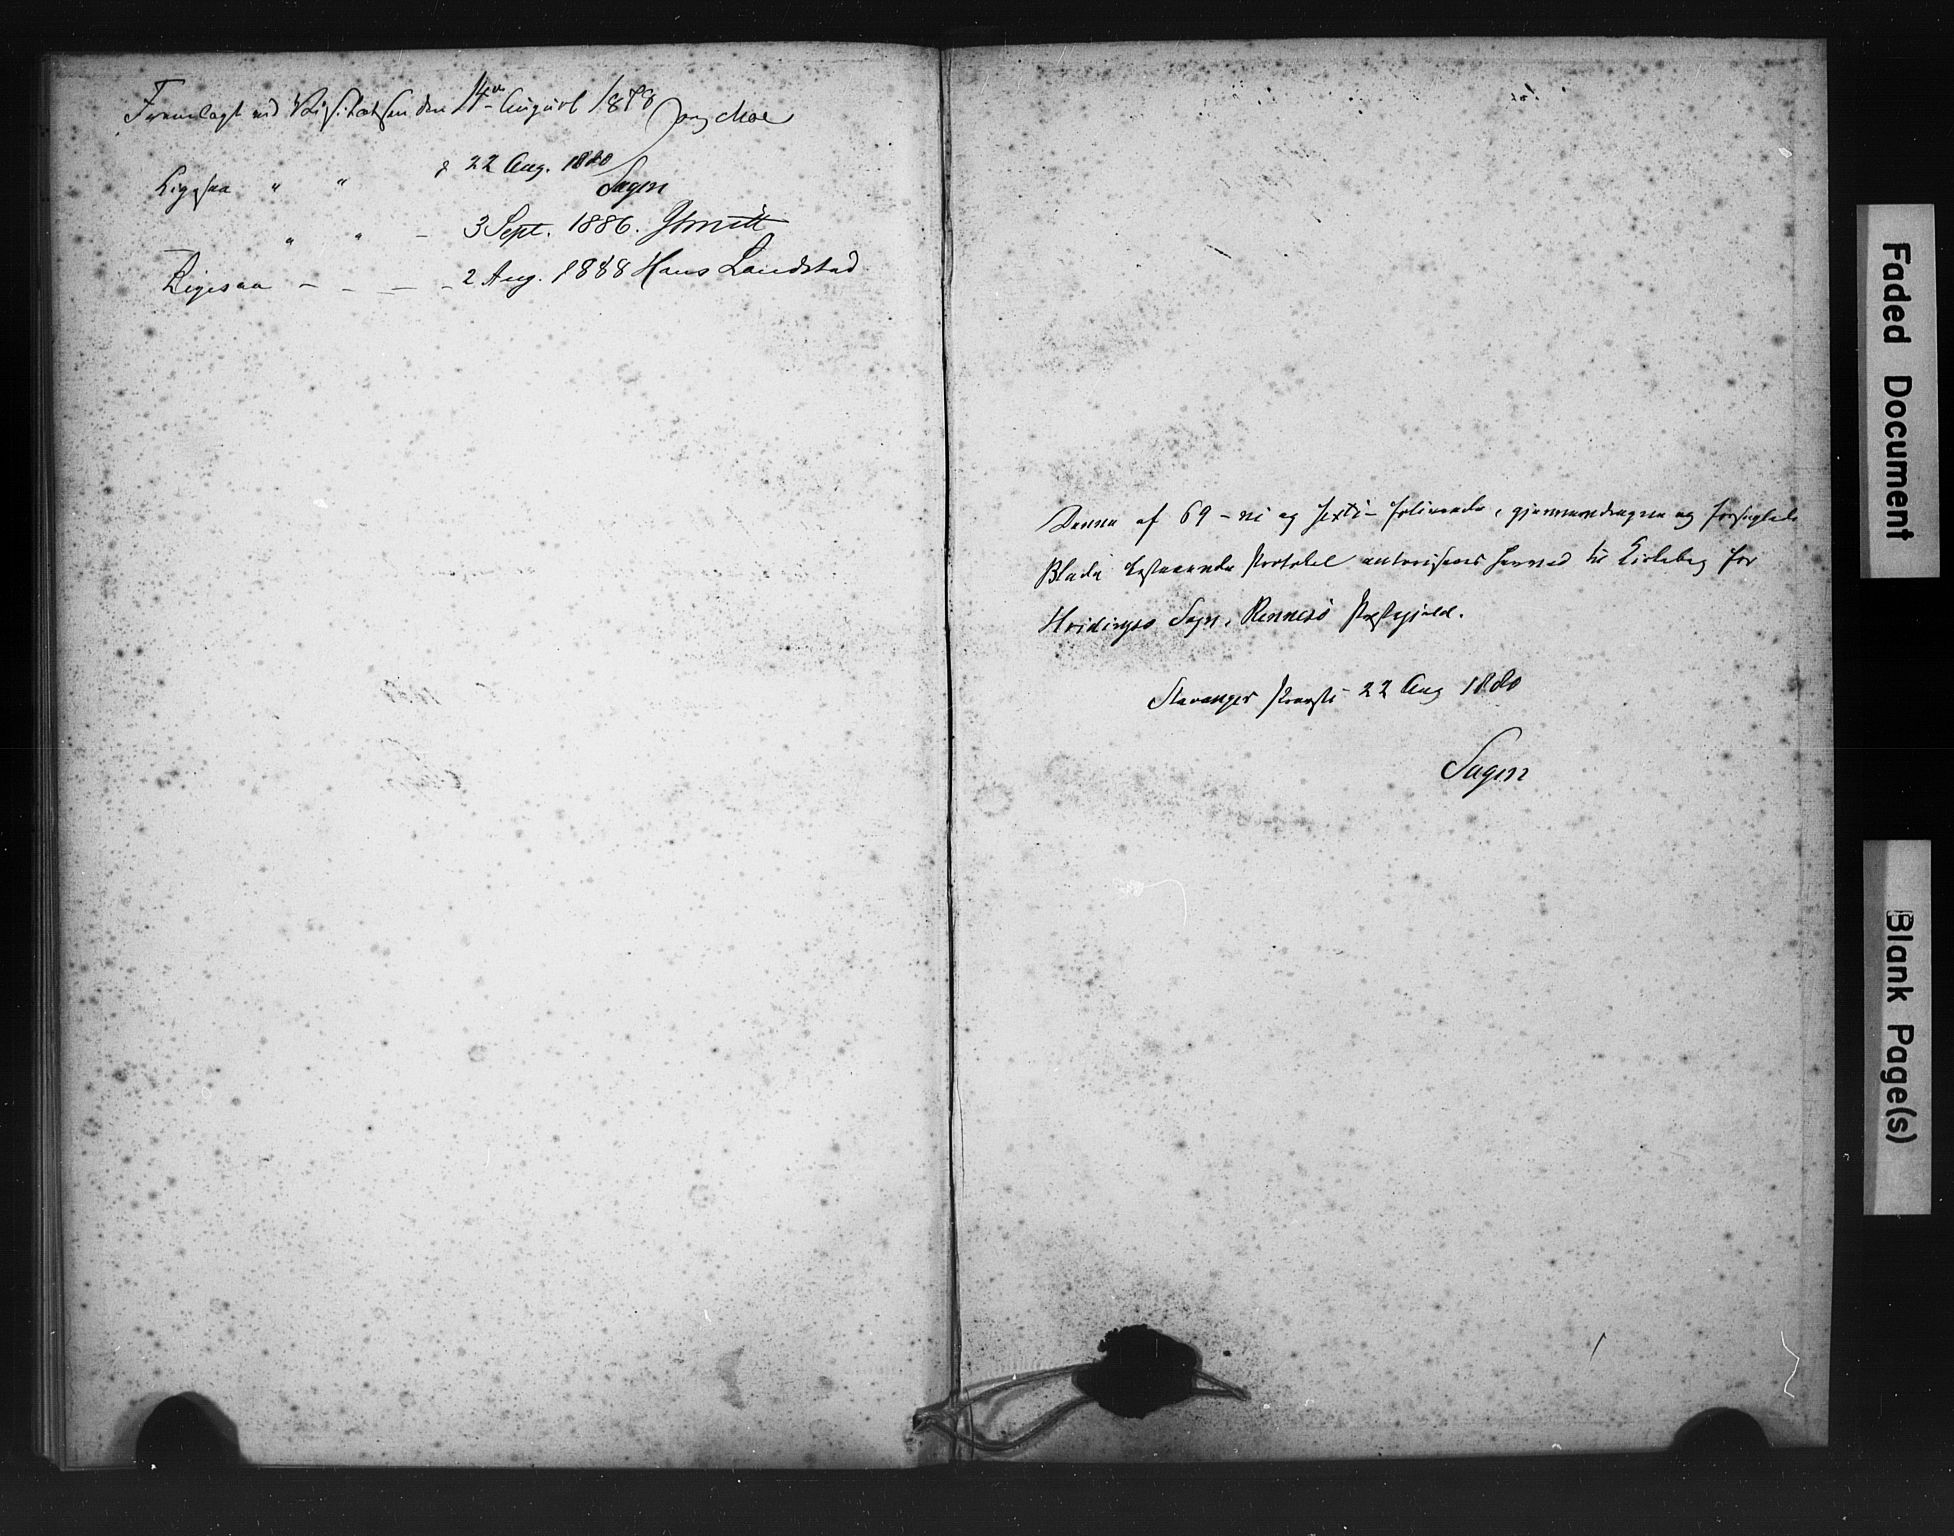 Fremlagt ved Visitatsen den 14de August 1878 Jørg Moe
Ligesaa " " d 22 Aug. 1880
Sagen
" " - 3 Sept. 1886.
Ligesaa - - - - 2 Aug. 1888 Hans Landstad
Denne af 69 - ni og sexti - folierede, gjennemdragne og forseglede
Blade bestaaende Protokol autoriseres herved til Kirkebog for
Hvidingsø Sogn, Rennesø Præstegjeld.
Stavanger Provsti 22 Aug 1880
Sagen
Faded Document
Blank Page(s)